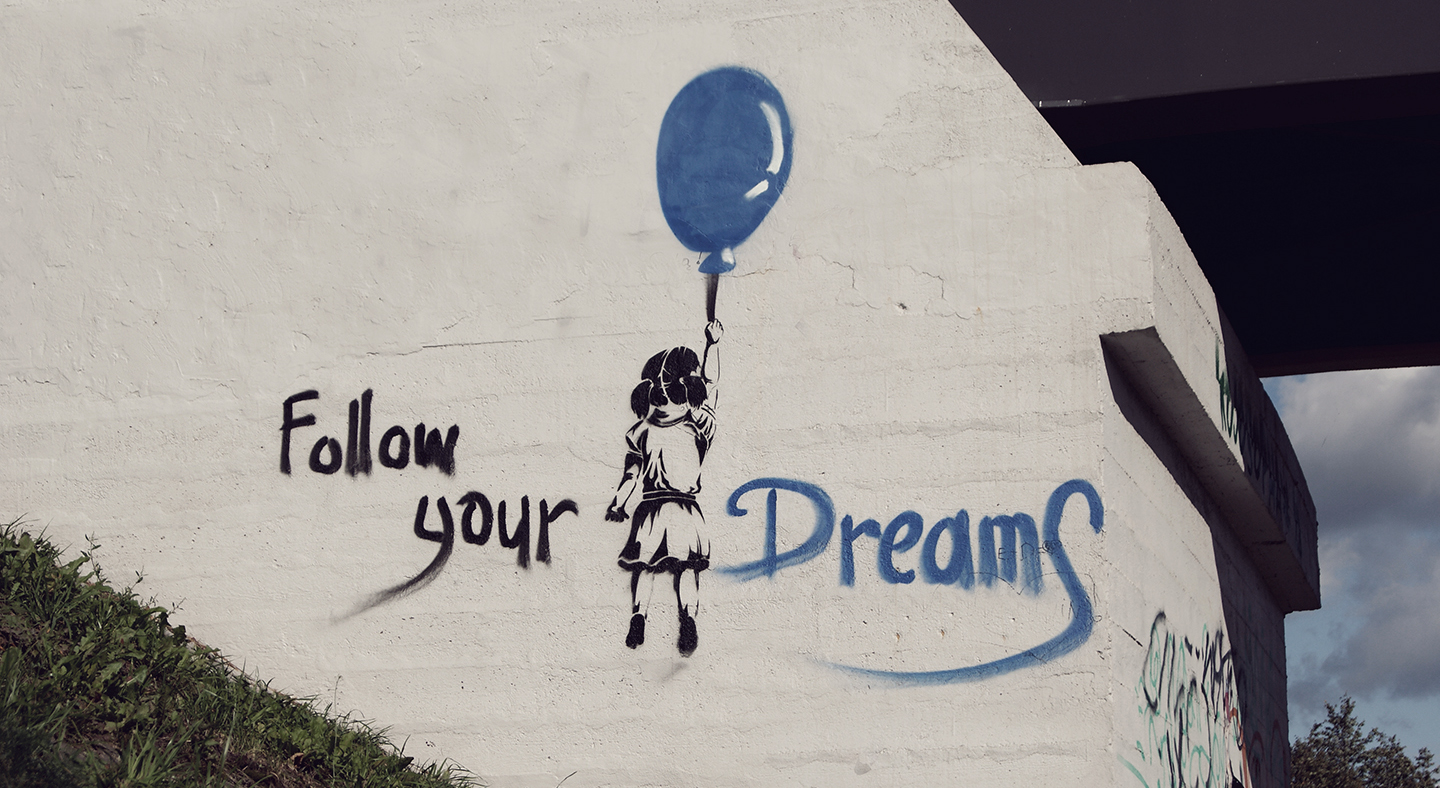 Follow
your
Dreams